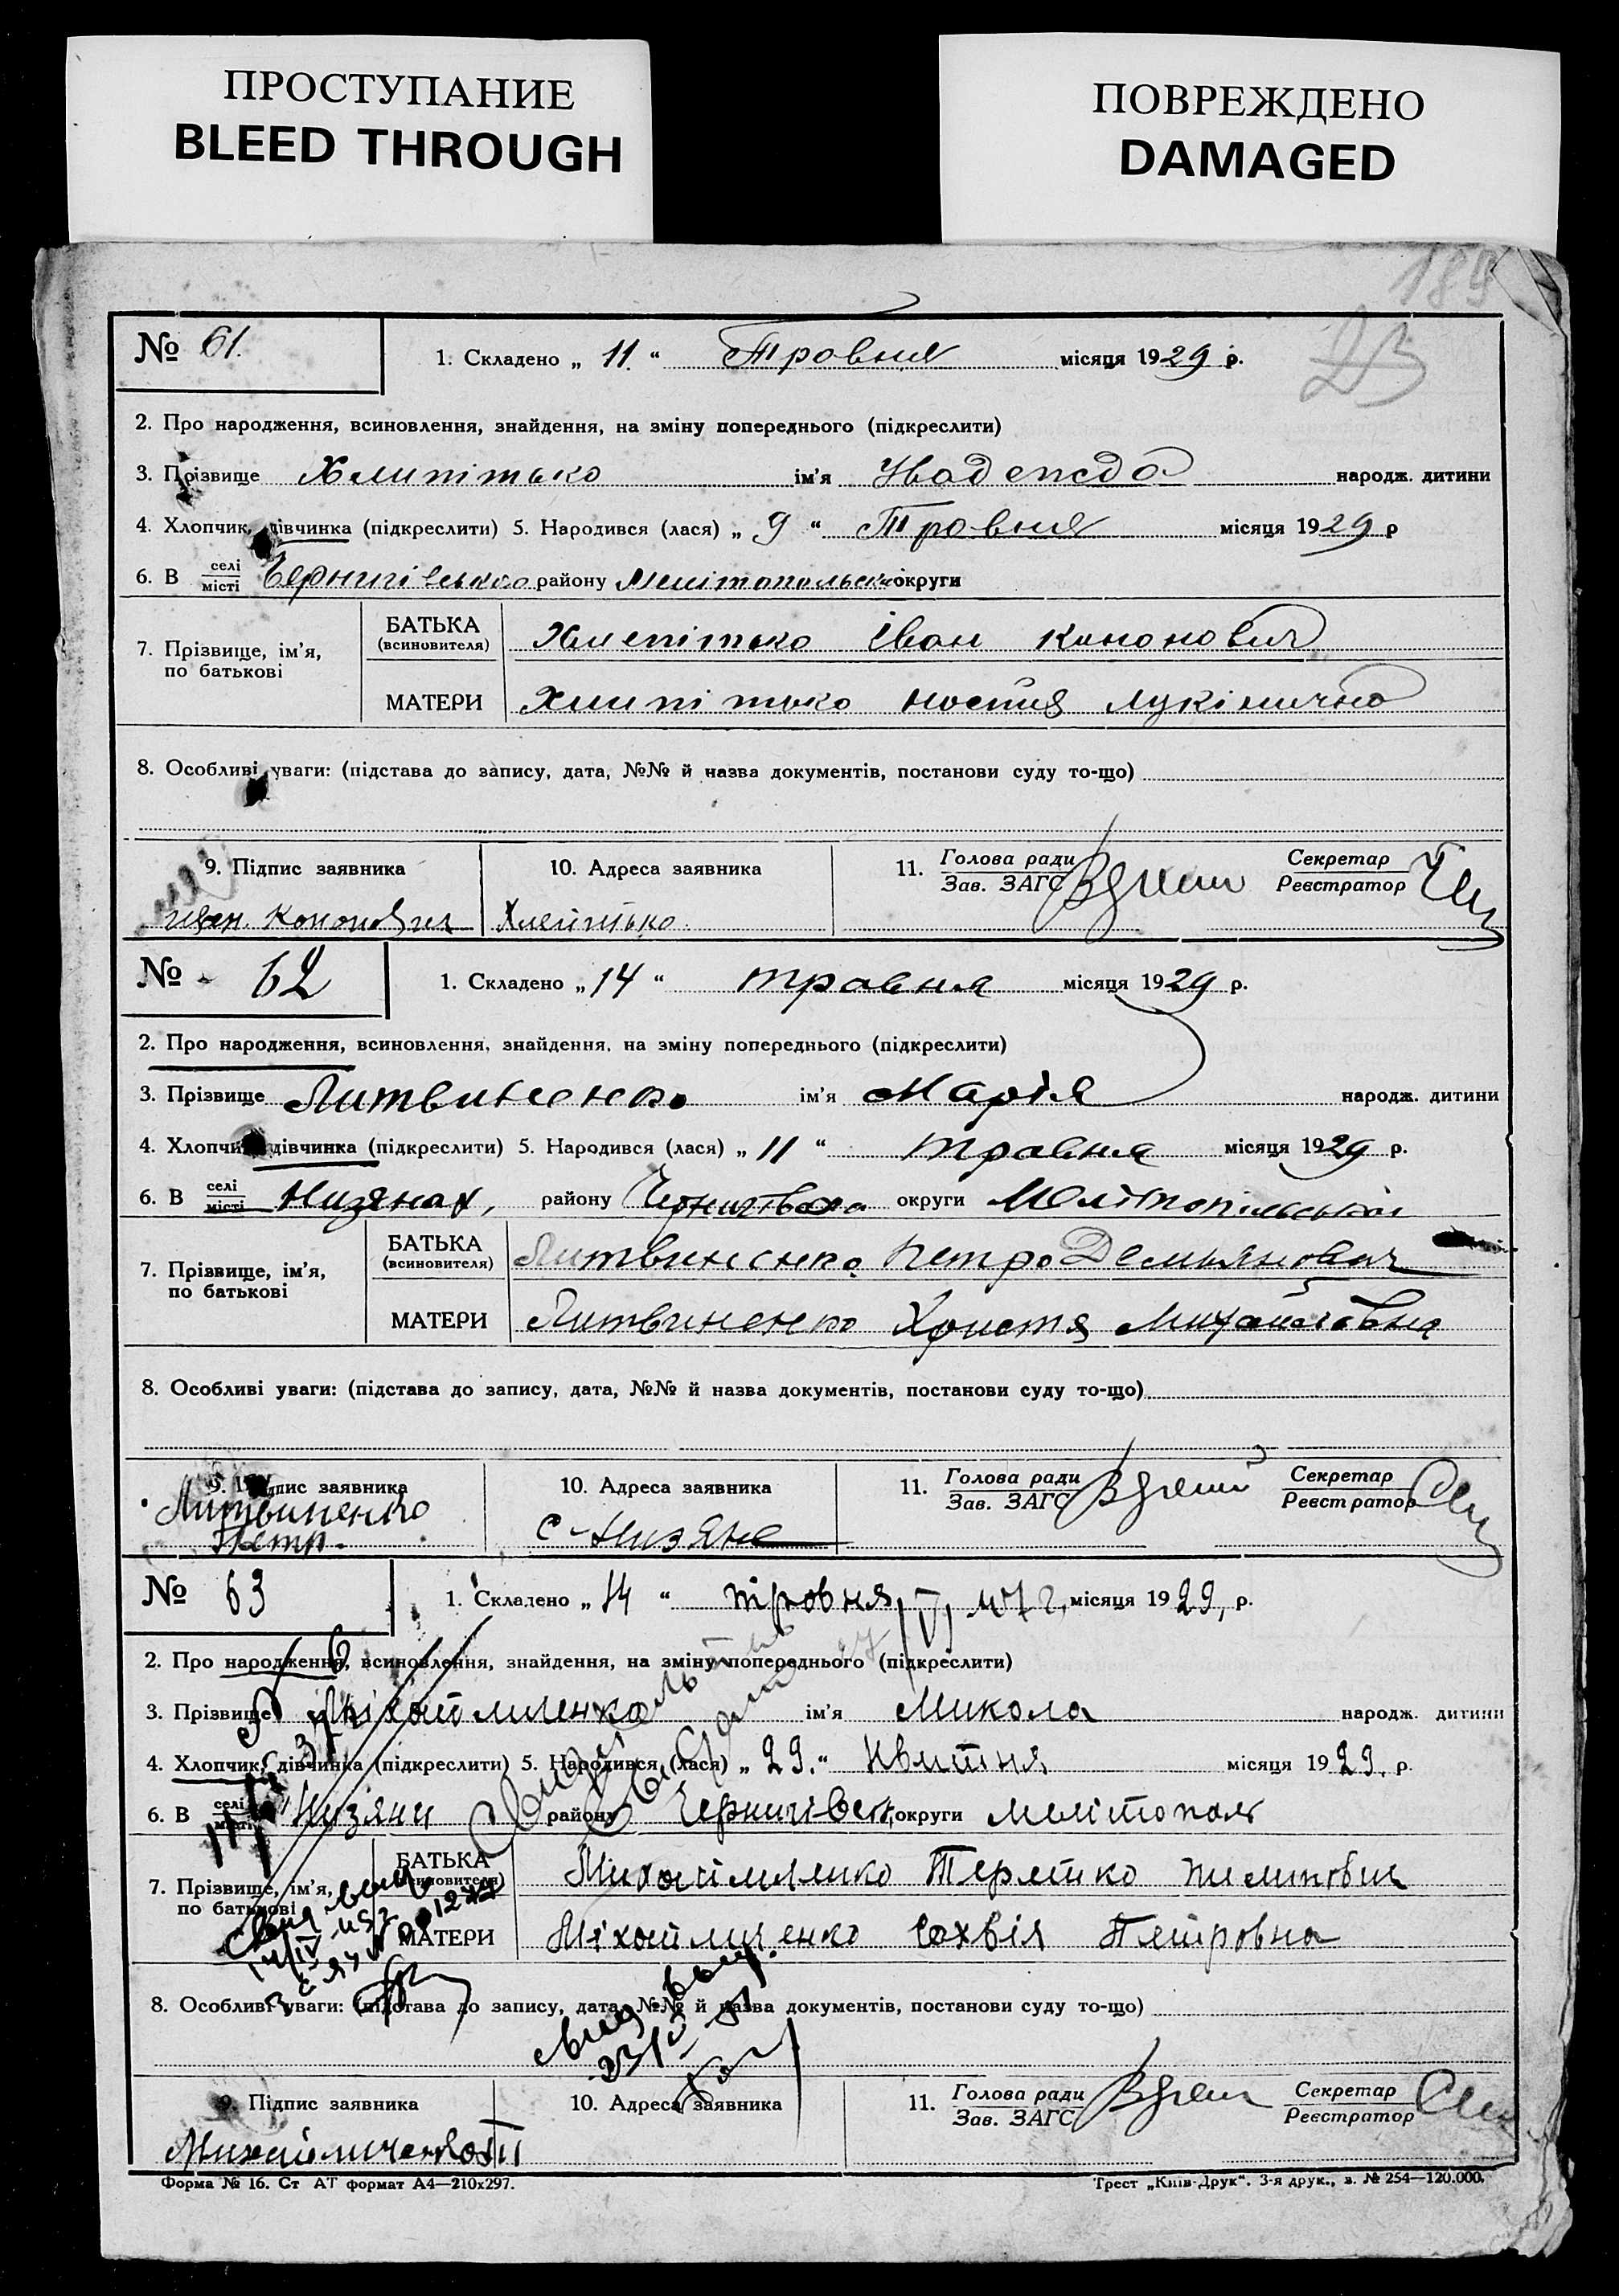 ПРОСТУПАНИЕ
BLEED THROUGH
ПОВРЕЖДЕНО
DAMAGED
189
23
№ 61. 1. Складено „ 11. “ Тровня місяця 1929 р.
2. Про народження, всиновлення, знайдення, на зміну попереднього (підкреслити)
3. Прізвище Хлипітько ім'я Надежда народж. дитини
4. Хлопчик, дівчинка (підкреслити) 5. Народився (лася) „ 9 “ Тровня місяця 1929 р
6. В селі місті Чернигівського району Мелітопольськ округи
7. Прізвище, ім'я, по батькові
БАТЬКА (всиновителя) Хлепітько Іван Кононович
МАТЕРИ Хлипітько Настия Лукінична
8. Особливі уваги: (підстава до запису, дата, №№ й назва документів, постанови суду то-що)
9. Підпис заявника 10. Адреса заявника 11. Голова ради Зав. ЗАГС Секретар Реєстратор
№ 62 1. Складено „ 14 “ травня місяця 1929 р.
2. Про народження, всиновлення, знайдення, на зміну попереднього (підкреслити)
3. Прізвище Литвиненко ім'я Марія народж. дитини
4. Хлопчик дівчинка (підкреслити) 5. Народився (лася) „ 11 “ травня місяця 1929 р.
6. В селі місті Низянах, району округи Мелітопільської
7. Прізвище, ім'я, по батькові
БАТЬКА (всиновителя) Литвиненко Петро Демьянович
МАТЕРИ Литвиненко Христя Михайлівна
8. Особливі уваги: (підстава до запису, дата, №№ й назва документів, постанови суду то-що)
9. Підпис заявника 10. Адреса заявника 11. Голова ради Зав. ЗАГС Секретар Реєстратор
Литвиненко Петр. с-Низяне
№ 63 1. Складено „ 14 “ тровня місяця 1929, р.
2. Про народження, всиновлення, знайдення, на зміну попереднього (підкреслити)
3. Прізвище ім'я Микола народж. дитини
4. Хлопчик, дівчинка (підкреслити) 5. Народився (лася) „ 29. “ Квитня місяця 1929. р.
6. В селі місті Низяни району Чернигівськ, округи Мелітополь
7. Прізвище, ім'я, по батькові
БАТЬКА (всиновителя)
МАТЕРИ Міхайличенко Сохвія Петровна
8. Особливі уваги: (підстава до запису, дата, №№ й назва документів, постанови суду то-що)
9. Підпис заявника 10. Адреса заявника 11. Голова ради Зав. ЗАГС Секретар Реєстратор
Форма № 16. Ст АТ формат А4—210х297. Трест „Київ-Друк“. 3-я друк., з. № 254—120.000.